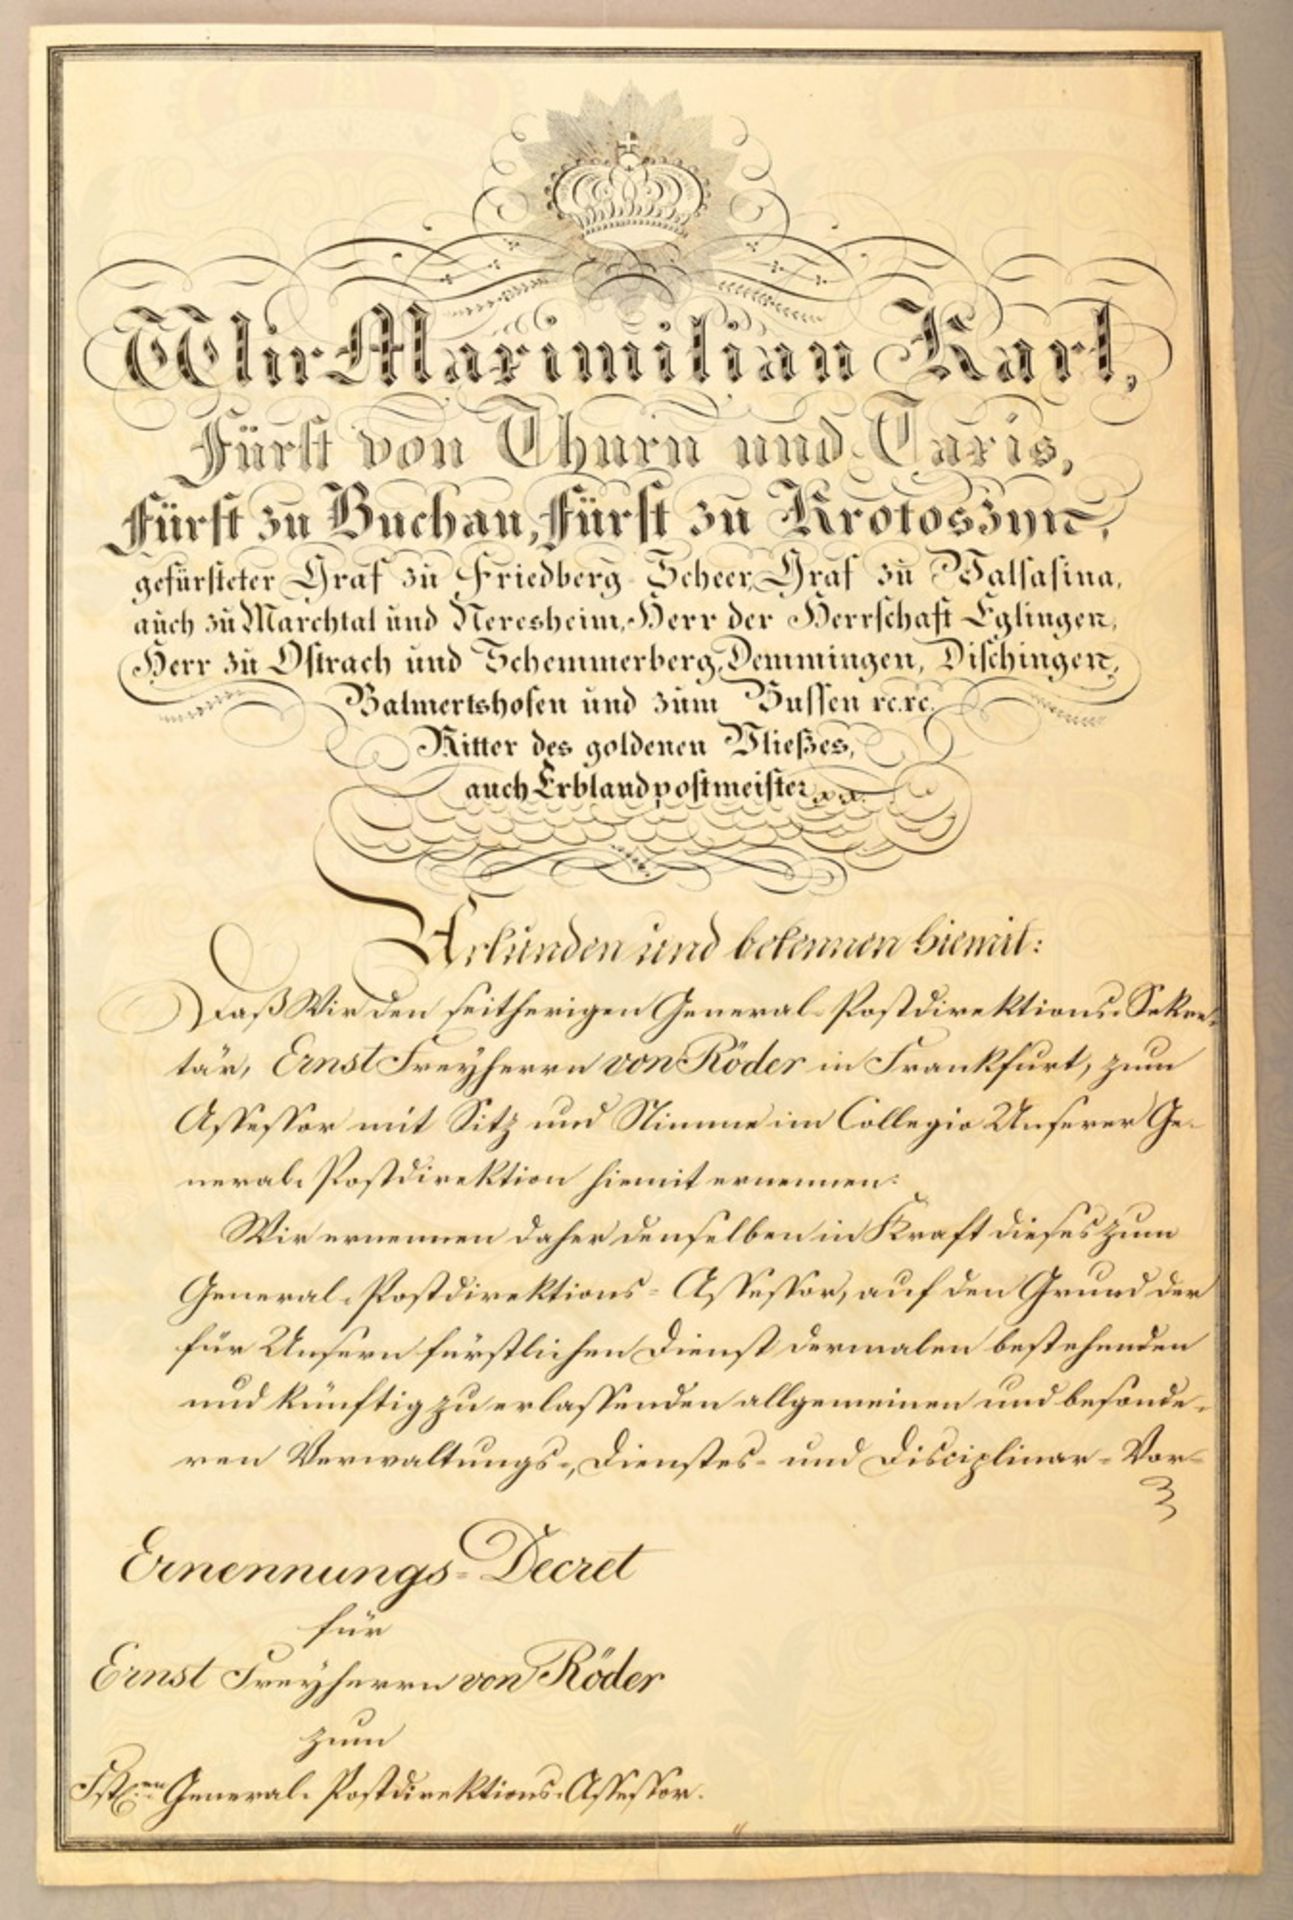 Wir Maximilian Karl,
Fürst von Thurn und Taxis,
Fürst zu Buchau, Fürst zu Krotoszyn,
gefürsteter Graf zu Friedberg-Scheer, Graf zu Valsasina,
auch zu Marchtal und Neresheim, Herr der Herrschaft Eglingen,
Herr zu Ostrach und Schemmerberg, Demmingen, Dischingen,
Balmertshofen und zum Bussen rc. rc.
Ritter des goldenen Vließes,
auch Erblandpostmeister
Urkunden und bekennen hiemit:
Daß Wir den seitherigen General-Postdirektions-Sekre-
tär, Ernst Freyherrn von Röder in Frankfurt, zum
Assessor mit Sitz und Stimme im Collegio Unserer Ge-
neral-Postdirektion hiemit ernennen:
Wir ernennen daher denselben in Kraft dieses zum
General-Postdirektions-Assessor, auf den Grund der
für Unsern fürstlichen Dienst dermalen bestehenden
und künftig zu erlassenden allgemeinen und besonde-
ren Verwaltungs-, Dienstes- und Disciplinar-Vor-
Ernennungs-Decret
für
Ernst Freyherrn von Röder
zum
General-Postdirektions-Assessor.